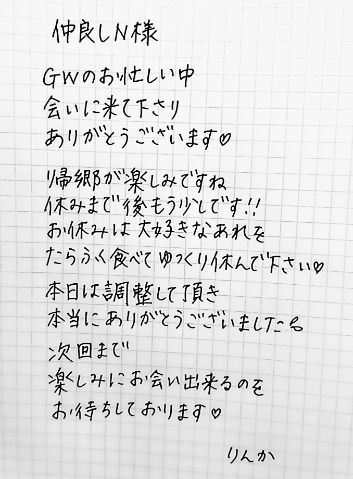 仲良しN様
GWのお忙しい中
会いに来て下さり
ありがとうございます♡
帰郷が楽しみですね
休みまで後もう少しです!!
お休みは大好きなあれを
たらふく食べてゆっくり休んで下さい♡
本日は調整して頂き
本当にありがとうございました
次回まで
楽しみにお会い出来るのを
お待ちしております♡
りんか